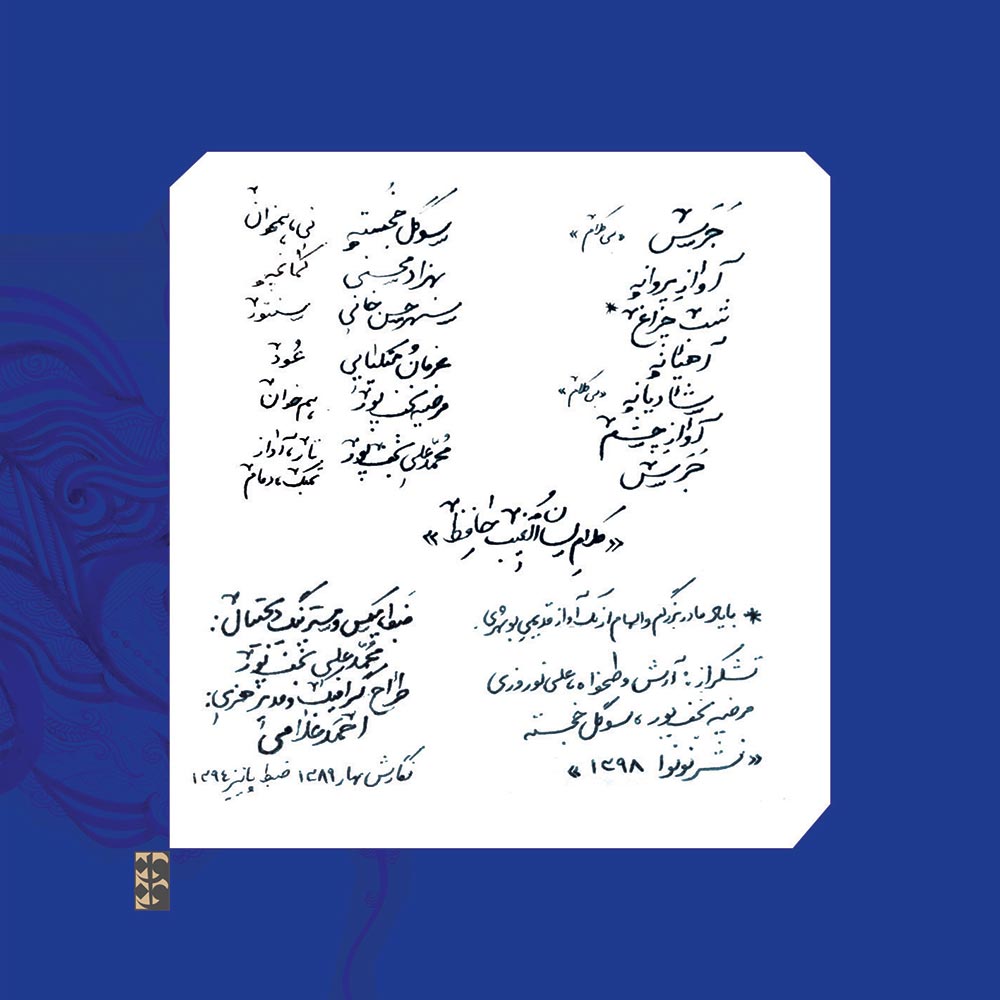 جَرَس «بی‌کلام»
آوازِ پروانه
شب چراغ *
آهنیانه
شادیانه «بی‌کلام»
آوازِ چشم
جَرَس
سوگل خُجسته نی، هم‌خوان
بهزاد محسنی کمانچه
سپهر حسن خانی سنتور
عرفان کتابی عُود
مرضیه نجف پور هم‌خوان
مُحمّدعلی نجف پور تار، آواز
تمبک، دمام
«کلام لسان الغیب حافظ»
* با یاد مادربزرگم و الهام از یک آواز قدیمی بوشهری.
تشکر از: آرش وطنخواه، علی نوروزی
مرضیه نجف پور، سوگل خجسته
«نشر نونوا ۱۳۹۸»
ضبط، میکس و مسترینگ دیجیتال:
مُحمّدعلی نجف پور
طراح گرافیک و مدیر هنری:
احمد غلامی
نگارش بهار ۱۳۸۹ ضبط پاییز ۱۳۹۴